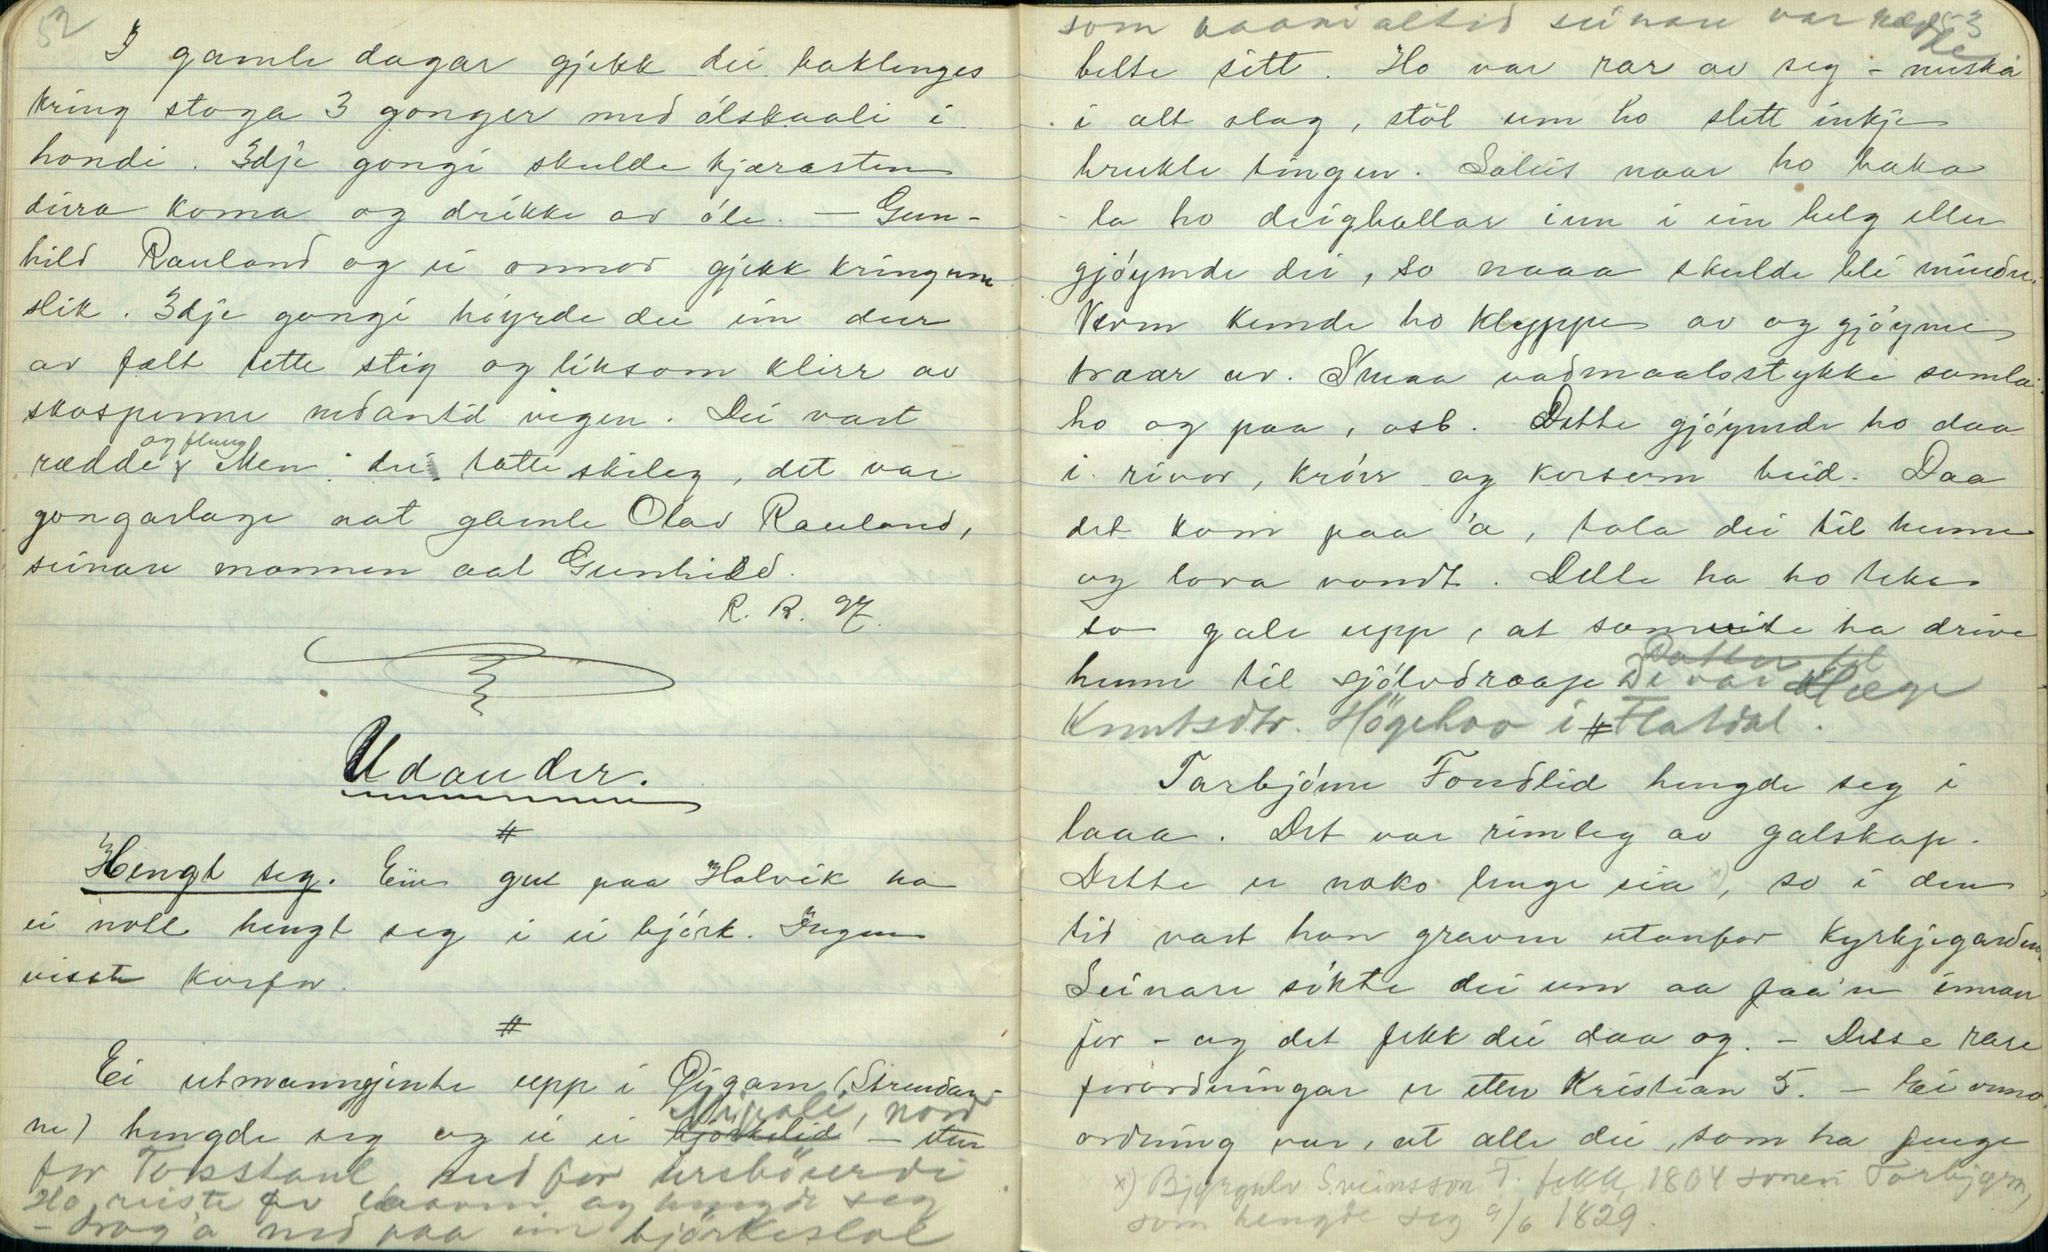 52
I gamle dagar gjekk dei baklenges
kring stoga 3 gonger med ølskaali i
hondi. 3dje gongi skulde kjærasten
deira koma og drikke av øle. — Gun-
hild Rauland og ei onnor gjekk kringum
slik. 3dje gongi høyrde dei ein der
av fælt lette stig og liksom klirr av
skospenne nedantil vegen. Dei vart
rædde og flaug. Men dei totte skileg, det var
gongarlage aat gamle Olav Rauland,
seinare mannen aat Gunhild.
R. R. 97.
Udauder.
#
Hengt seg. Ein gut paa Holvik ha
ei nott hengt seg i ei bjørk. Ingen
visste korfor.
#
Ei utmanngjente upp i Øygarn (Strendar-
ne) hengde seg og i ei bjørkelid, nord
for Tosstaul, sud for
Ho reiste av og hengde seg
– drog a ned paa ein bjørkeslol
53
som altid seinare var rædde
belte sitt. Ho var rar av seg – nuska
i alt slag, stol um ho slett inkje
brukte tingen. Soleis naar ho baka
la ho deigballar inn i ein belg eller
gjøymde dei, so naaa skulde bli mindre.
Verm kunde ho klyppe av og gjøyme
traar av. Smaa vadmaalsstykke samla
ho og paa, osb. Dette gjøymde ho daa
i rivor, krörr og korsom beid. Daa
det kom paa 'a, tala dei til henne
og lova vondt. Dette ha ho teke
so gale upp, at samvite ha drive
henne til sjølvdraap. De var Hæge
Knutsdtr. Høgehov i Flatdal.
Torbjønn Fondlid hengde seg i
laaa. Det var rimleg av galskap.
Dette er noko lenge sia x), so i den
tid vart han graven utanfor kyrkjegarden.
Seinare søkte dei um aa faa'n innan
for – og det fekk dei daa og. – Desse rare
forordningar er etter Kristian 5. – Ei onnor
ordning var, at alle dei, som ha fenge
x) Bjyrgulv Sveinsson F. fekk 1804 sonen Torbjørn,
som hengde seg 9/6 1829.